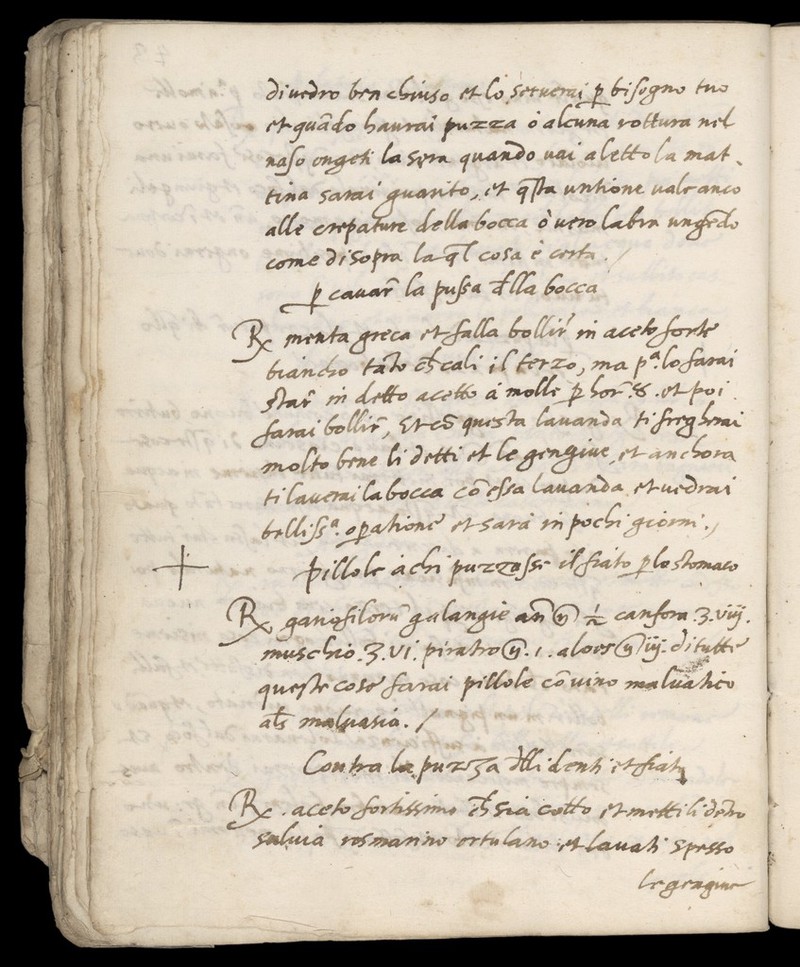 di uedro ben chiuso et lo seruerai p̱ bisogno tuo
et quãdo haurai puzza ò alcuna rottura nel
naso ongeti la sera quando uai a letto la mat
tina sarai guarito, et q̃sta untione uale anco
alle crepature della bocca ò uero labra ungẽdo
come di sopra la q̃l cosa è certa ./
p̱ cauar̃ la pussa d̃lla bocca
℞ menta greca et falla bollir̃ in aceto forte
biancho tãto ch̃ cali il terzo, ma pª lo farai
star̃ in detto acetto à molle p̱ hor̃ 8. et poi
farai bollir̃, Et cõ questa lauanda ti fregherai
molto bene li detti et le gengiue et anchora
ti lauerai la bocca cõ essa lauanda et uedrai
bellissª. op̱atione et sarà in pochi giorni ./
Pillole à chi puzzasse il fiato p̱ lo stomaco
℞ gariofilorũ galangie añ ℥ ½ canfora .ʒ. viij.
muschio .ʒ. vi. piratro ℥ .1. aloes ℥ iij. di tutte
queste cose farai pillole cõ vino maluatico
al̃s maluasia. /
Contra la puzza d̃lli denti et fiato
℞ . aceto fortissimo ch̃ sia cotto et mettili dẽtro
saluia rosmarino ortulano et lauati spesso
le gengiue